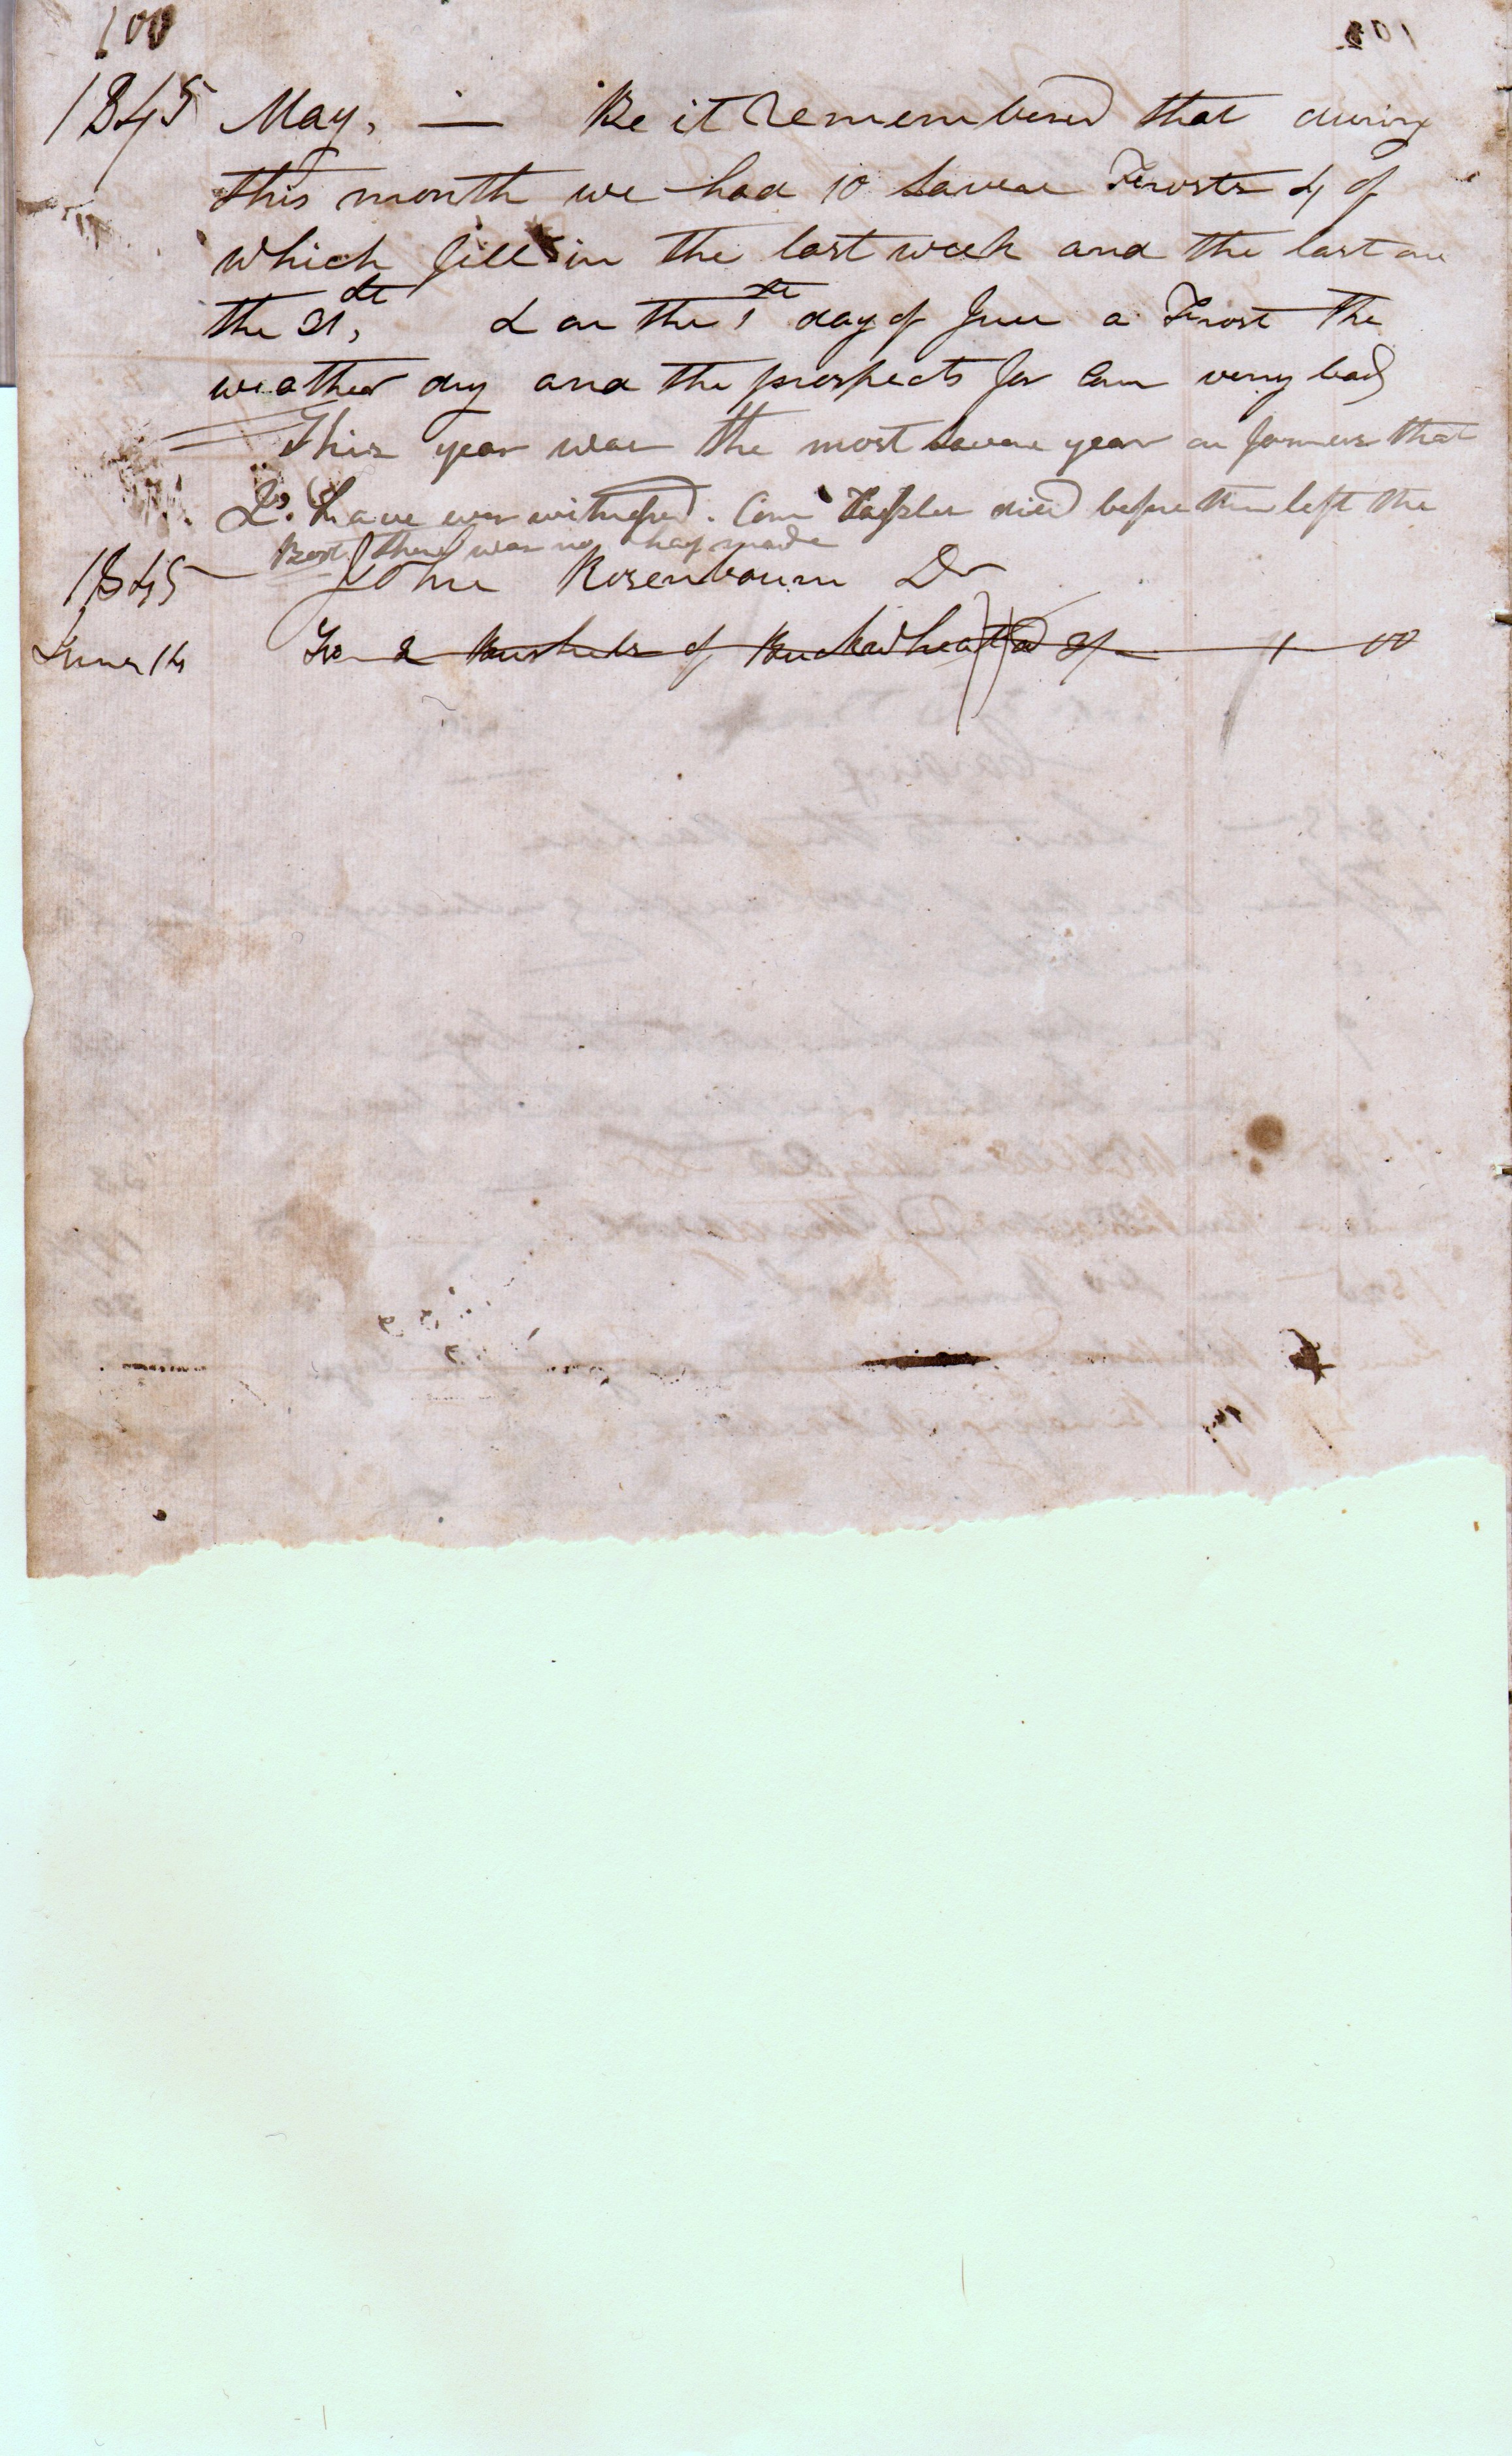 100
1845 May, — Be it Remembered that during
this month we had 10 Savere Frosts 4 of
which fell in the last week and the last on
the 31st, & on the 1st day of June a Frost The
weather dry and the prospects for Corn verry bad
This year was the most Savere year on farmers that
I have ever witnessed. Corn Tassler died before them left the
Boot there was no hay made
1845 John Rosenbaum Dr
June 14 To 2 Bushels of Buckwheat @ 3/ 1 00